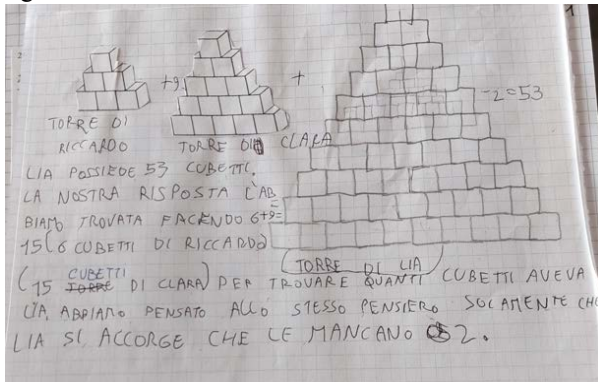 1
+9
+
-2=53
TORRE DI
RICCARDO
TORRE DI CLARA
LIA POSSIEDE 53 CUBETTI.
LA NOSTRA RISPOSTA L'AB
BIAMO TROVATA FACENDO 6+9=
=
15(6 CUBETTI DI RICCARDO)
TORRE DI LIA
(15 CUBETTI DI CLARA) PER TROVARE QUANTI CUBETTI AVEVA
LIA, ABBIAMO PENSATO ALLO STESSO PENSIERO SOLAMENTE CH
LIA SI ACCORGE CHE LE MANCANO 2.